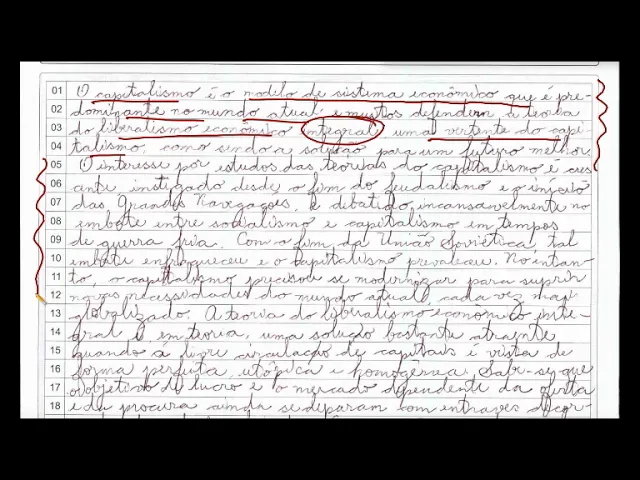 01 O capitalismo é o modelo de sistema econômico que é pre-
02 dominante no mundo atual e muitos defendem a teoria
03 do liberalismo econômico integral, uma vertente do capi-
04 talismo, como sendo a solução para um futuro melhor.
05 O interesse por estudos das teorias do capitalismo é cres
06 ante, instigado desde o fim do feudalismo e o início
07 das Grandes Navegações, e debatido incansavelmente no
08 embate entre socialismo e capitalismo em tempos
09 de guerra fria. Com o fim da União Soviética, tal
10 embate enfraqueceu e o capitalismo prevaleceu. No entan-
11 to, o capitalismo precisou se modernizar para suprir
12 novas necessidades do mundo atual, cada vez mais
13 globalizado. A teoria do liberalismo econômico inte-
14 gral é, em teoria, uma solução bastante atraente
15 quando a livre circulação de capitais é vista de
16 forma perfeita, utópica e homogênea. Sabe-se que
17 o objetivo de lucro e o mercado dependente da oferta
18 e da procura ainda se deparam com entraves decor-